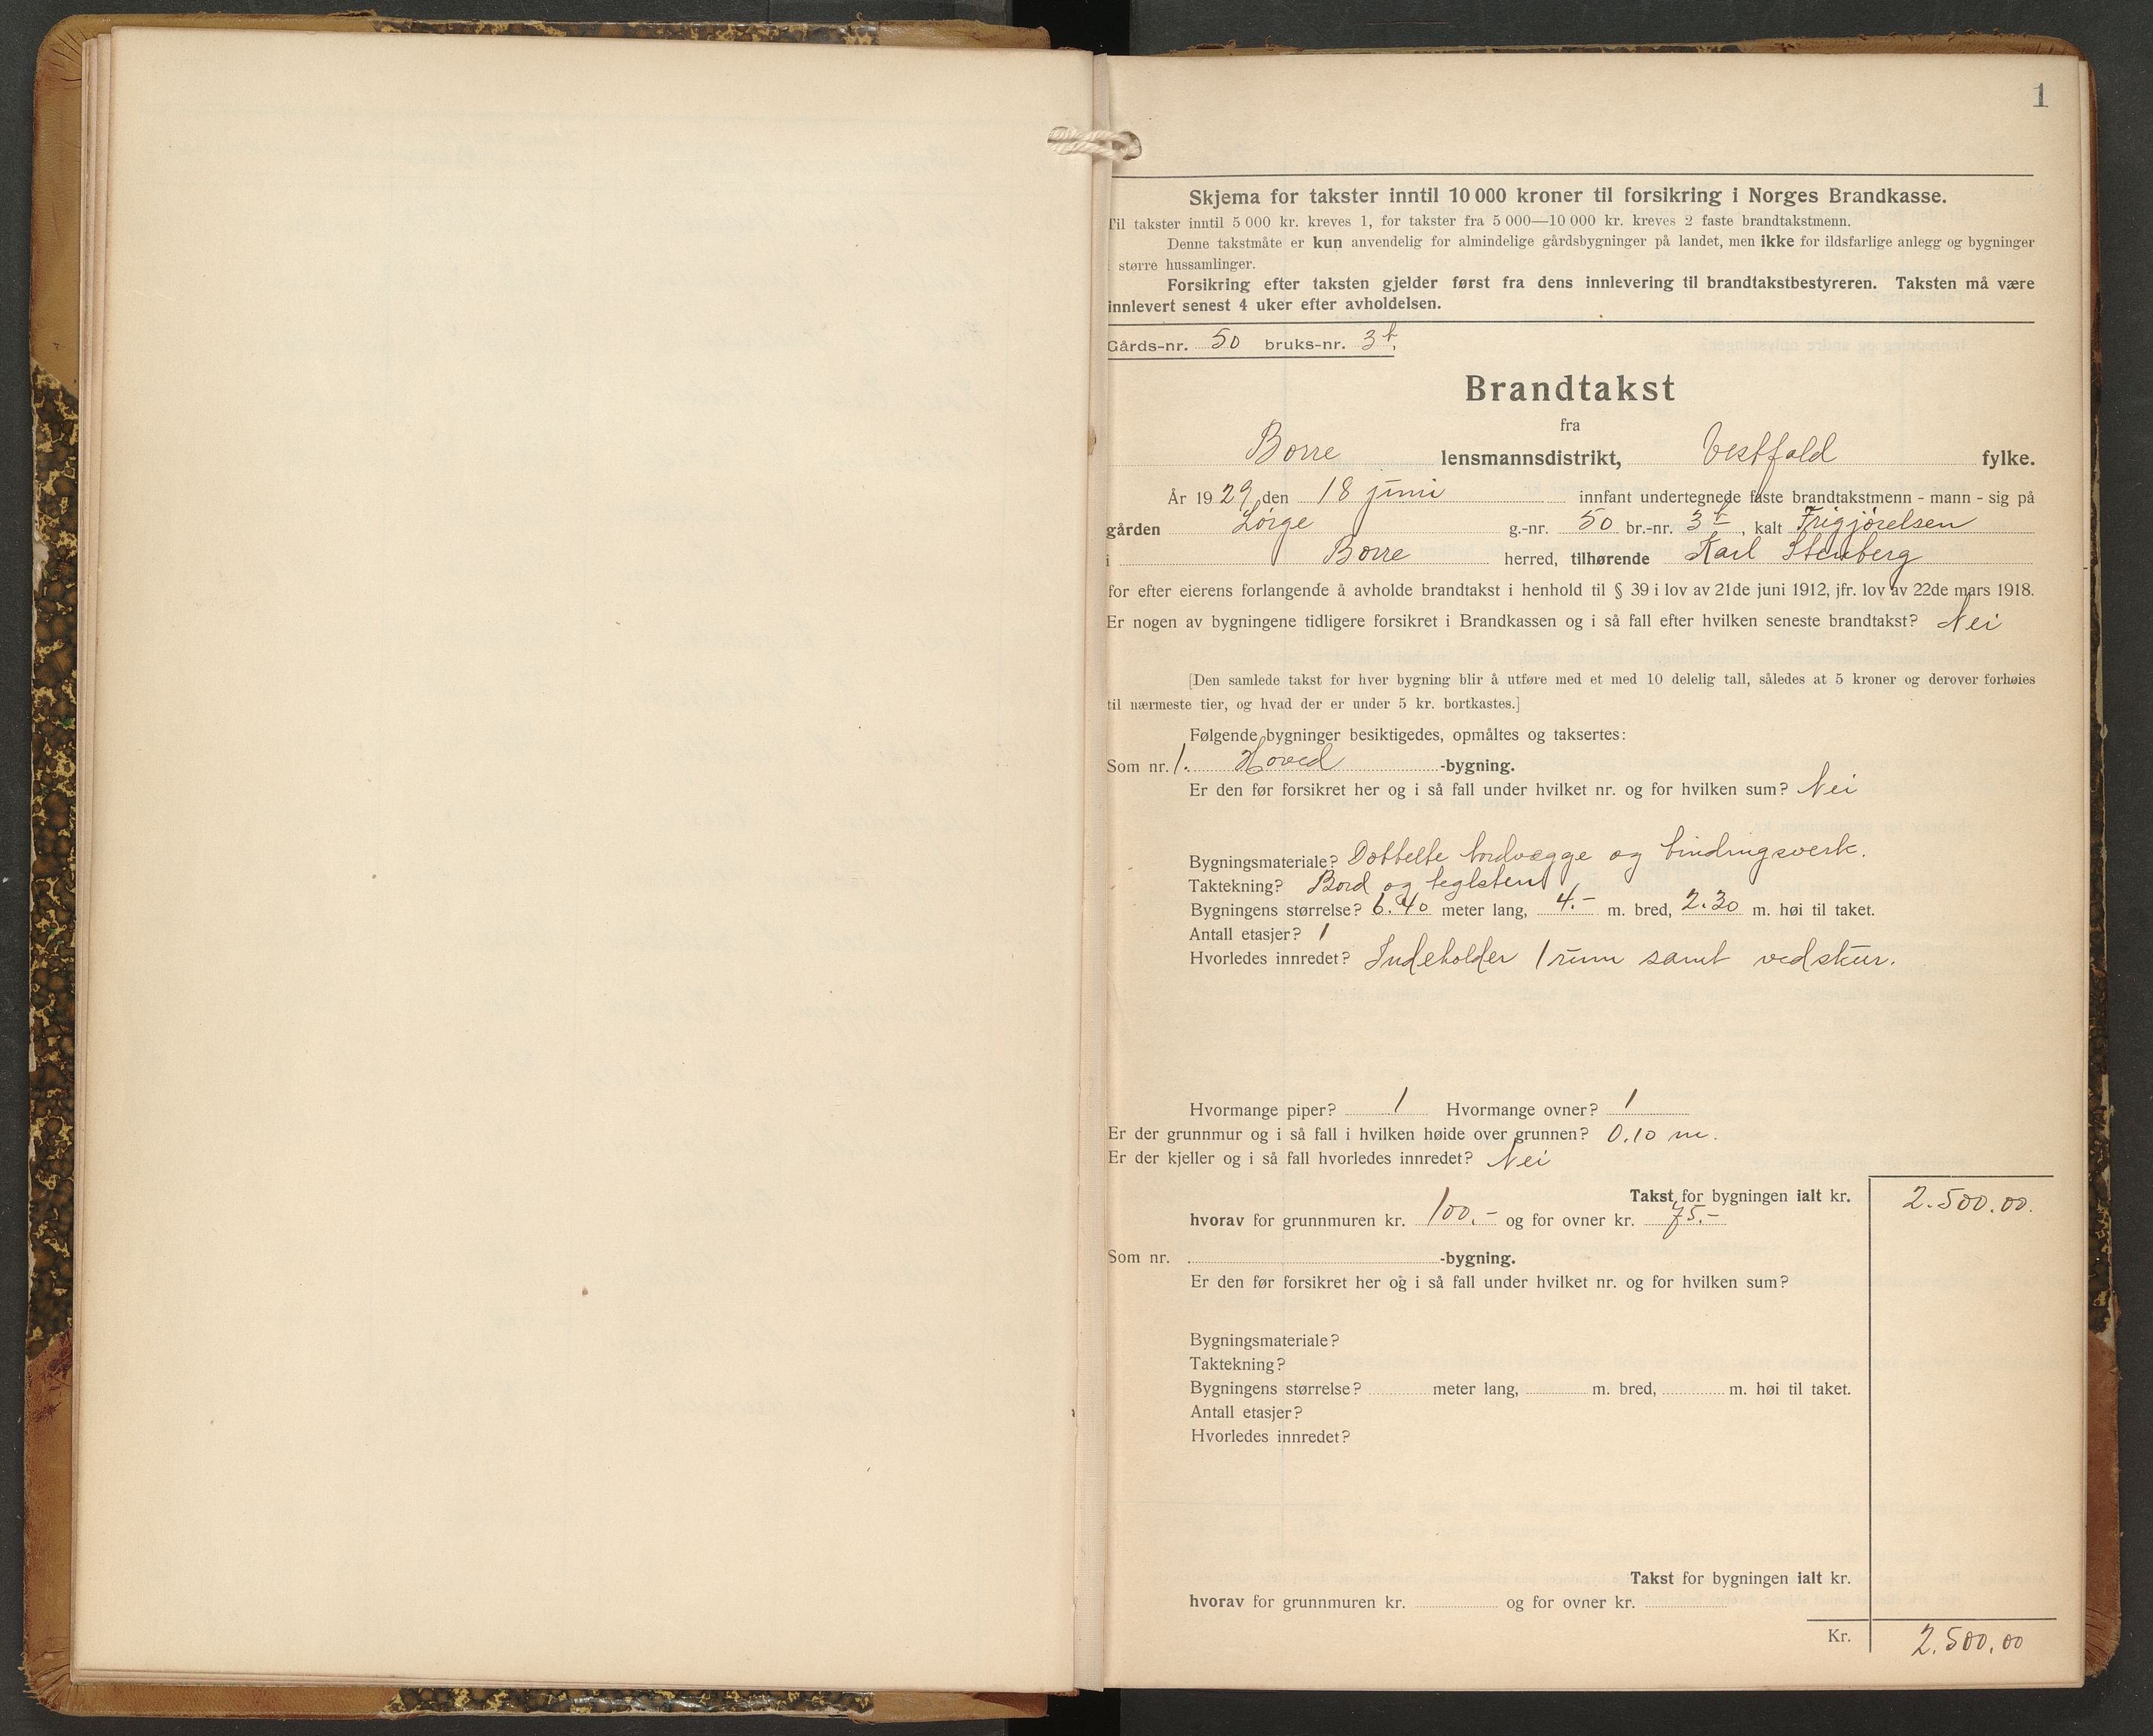 1
Skjema for takster inntil 10 000 kroner til forsikring i Norges Brandkasse.
Til takster inntil 5 000 kr. kreves 1, for takster fra 5 000—10 000 kr. kreves 2 faste brandtakstmenn.
Denne takstmåte er kun anvendelig for almindelige gårdsbygninger på landet, men ikke for ildsfarlige anlegg og bygninger
i større hussamlinger.
Forsikring efter taksten gjelder først fra dens innlevering til brandtakstbestyreren. Taksten må være
innlevert senest 4 uker efter avholdelsen.
Gårds-nr. 50 bruks-nr. 3
Brandtakst
fra
Borre lensmannsdistrikt, Vestfold fylke.
År 1929 den 18 juni innfant undertegnede faste brandtakstmenn - mann - sig på
gården Lørge g.-nr. 50 br.-nr. 3, kalt
i Borre herred, tilhørende Karl Stenberg
for efter eierens forlangende å avholde brandtakst i henhold til § 39 i lov av 21de juni 1912, jfr. lov av 22de mars 1918.
Er nogen av bygningene tidligere forsikret i Brandkassen og i så fall efter hvilken seneste brandtakst? Nei
[Den samlede takst for hver bygning blir å utføre med et med 10 delelig tall, således at 5 kroner og derover forhøies
til nærmeste tier, og hvad der er under 5 kr. bortkastes.]
Følgende bygninger besiktigedes, opmåltes og taksertes:
Som nr. 1. Hoved -bygning.
Er den før forsikret her og i så fall under hvilket nr. og for hvilken sum? Nei
Bygningsmateriale? Dobbelte bordvægge og bindingsverk.
Taktekning? Bord og teglsten
Bygningens størrelse? 6.40 meter lang, 4.- m. bred, 2.30 m. høi til taket.
Antall etasjer? 1
Hvorledes innredet? Indeholder 1 rum samt vedskur.
Hvormange piper? 1 Hvormange ovner? 1
Er der grunnmur og i så fall i hvilken høide over grunnen? 0.10 m.
Er der kjeller og i så fall hvorledes innredet? Nei
Takst for bygningen ialt kr. 2.500.00.
hvorav for grunnmuren kr. 100.- og for ovner kr. 75.-
Som nr. -bygning.
Er den før forsikret her og i så fall under hvilket nr. og for hvilken sum?
Bygningsmateriale?
Taktekning?
Bygningens størrelse? meter lang, m. bred, m. høi til taket.
Antall etasjer?
Hvorledes innredet?
Takst for bygningen ialt kr.
hvorav for grunnmuren kr. og for ovner kr.
Kr. 2.500.00